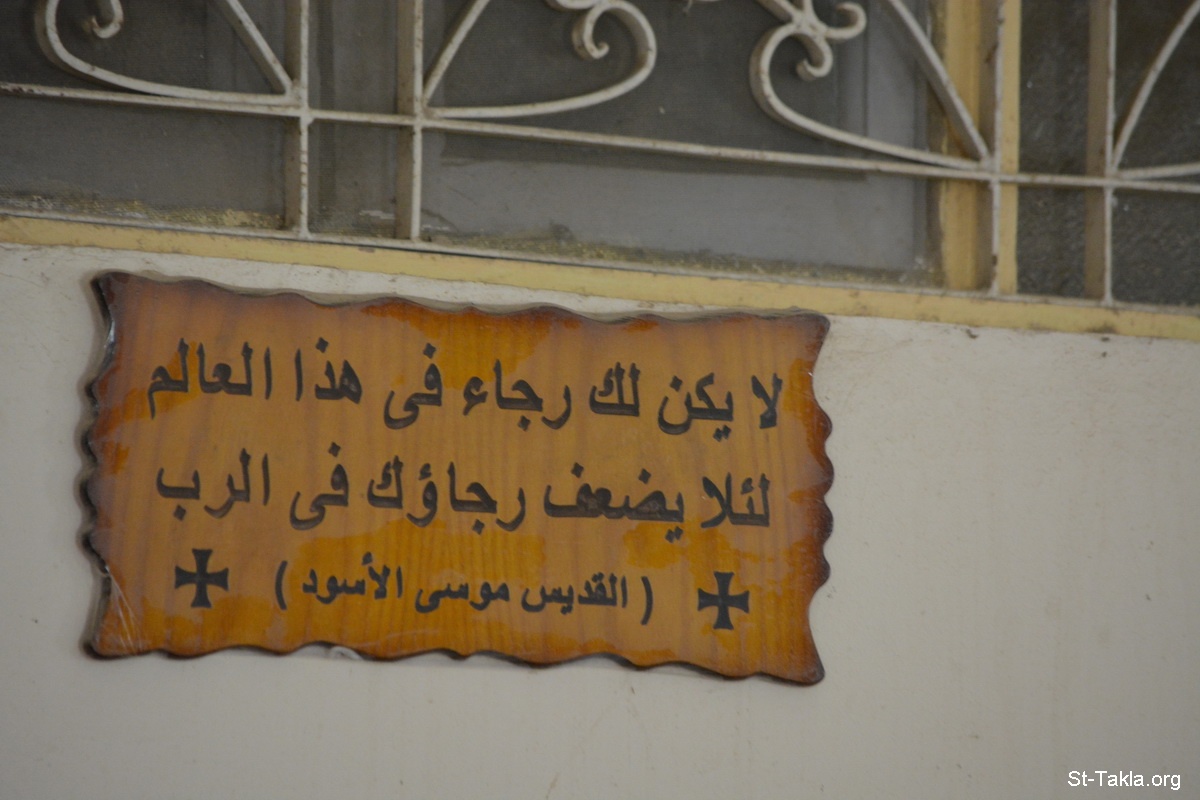 لا يكن لك رجاء فى هذا العالم
لئلا يضعف رجاؤك فى الرب
( القديس موسى الأسود )
St-Takla.org